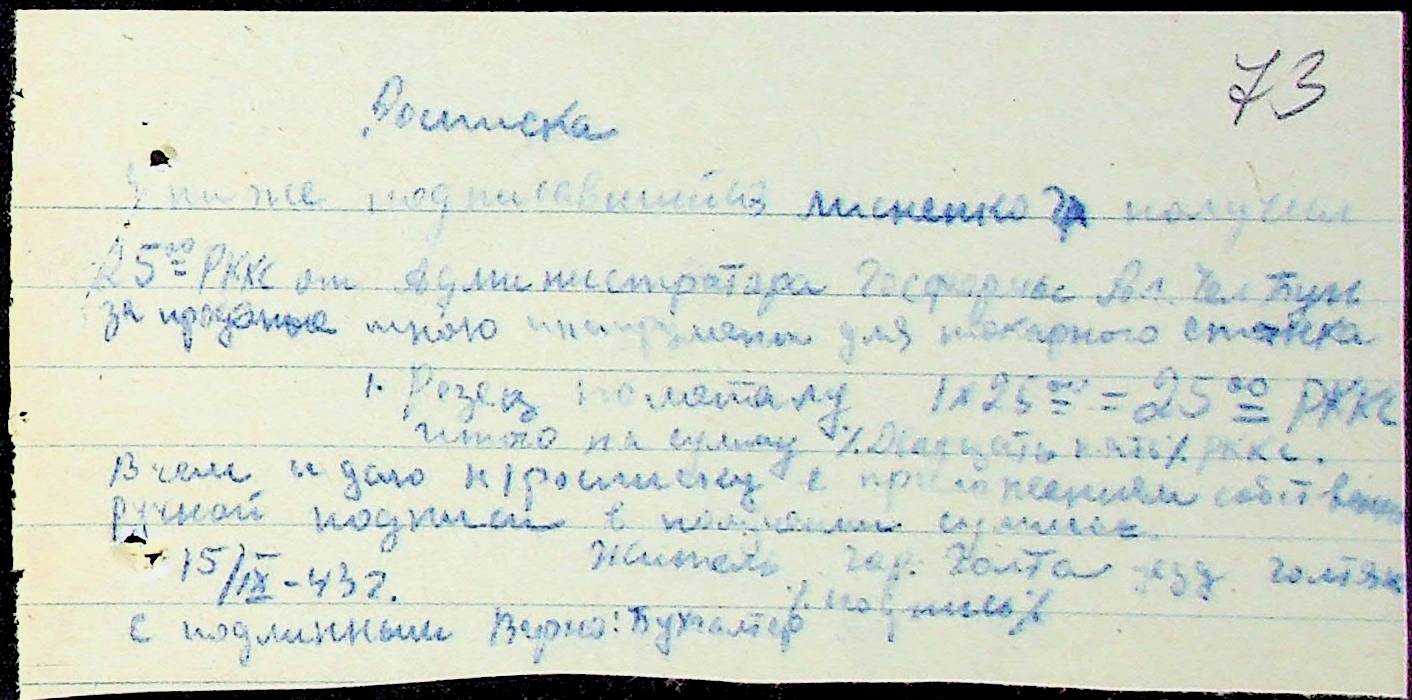 73
Росписка
Я ниже подписавшийся Лисненко получил
25 00 РККС от Администратора Госфермы Вл.
за проданые мною инструменты для токарного станка
1. Резец по металу 1х25 00 = 25 00 РККС
итого на сумму /.Двадцать пять/. РККС.
В чем и даю н/росписку с приложением собствен
ручной подписи в получении суммы
15/IX-43г. Житель гор. Голта уезд Голтян
/.подпись/.
С подлинным Верно: Бухгалтер